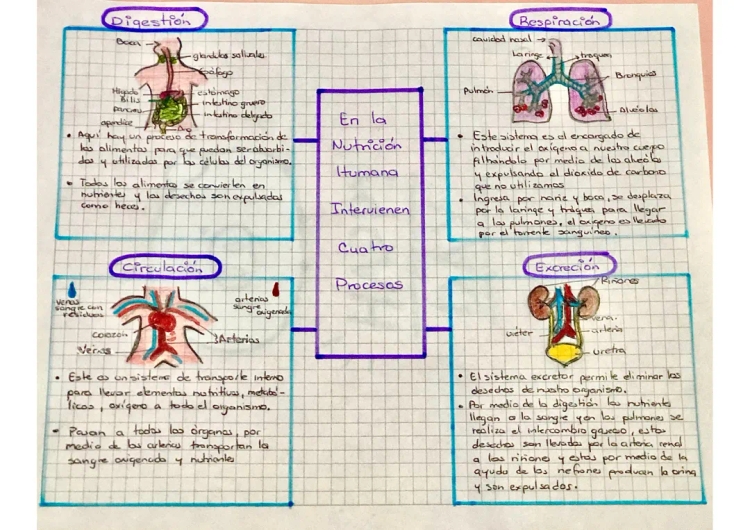 Digestión
Boca
glandulas salivales
Esófago
Hígado
Bilis
estómago
pancreas
intestino grueso
intestino delgado
apendice
Ano
• Aquí hay un proceso de transformación de
los alimentos para que puedan ser absorbi-
dos y utilizados por las células del organismo.
• Todos los alimentos se convierten en
nutrientes y los desechos son expulsados
como heces.
Respiración
cavidad nasal
Laringe
traquea
Bronquios
Pulmón
Alveolos
• Este sistema es el encargado de
introducir el oxígeno a nuestro cuerpo
filtrandolo por medio de los alveólos
y expulsando el dióxido de carbono
que no utilizamos
• Ingresa por nariz y boca, se desplaza
por la laringe y tráquea para llegar
a los pulmones, el oxígeno es llevado
por el torrente sanguíneo.
En la
Nutrición
Humana
Intervienen
Cuatro
Procesos
Circulación
venas
sangre con
residuos
arterias
sangre
oxigenada
Corazón
Venas
Arterias
• Este es un sistema de transporte interno
para llevar elementos nutritivos, metabó-
licos, oxígeno a todo el organismo.
• Pasan a todos los órganos, por
medio de las arterias transportan la
sangre oxigenada y nutrientes
Excreción
Riñones
vena
arteria
uréter
uretra
• El sistema excretor permite eliminar los
desechos de nuestro organismo.
• Por medio de la digestión los nutrientes
llegan a la sangre y en los pulmones se
realiza el intercambio gaseoso, estos
desechos son llevados por la arteria renal
a los riñones y estos por medio de la
ayuda de los nefrones producen la orina
y son expulsados.